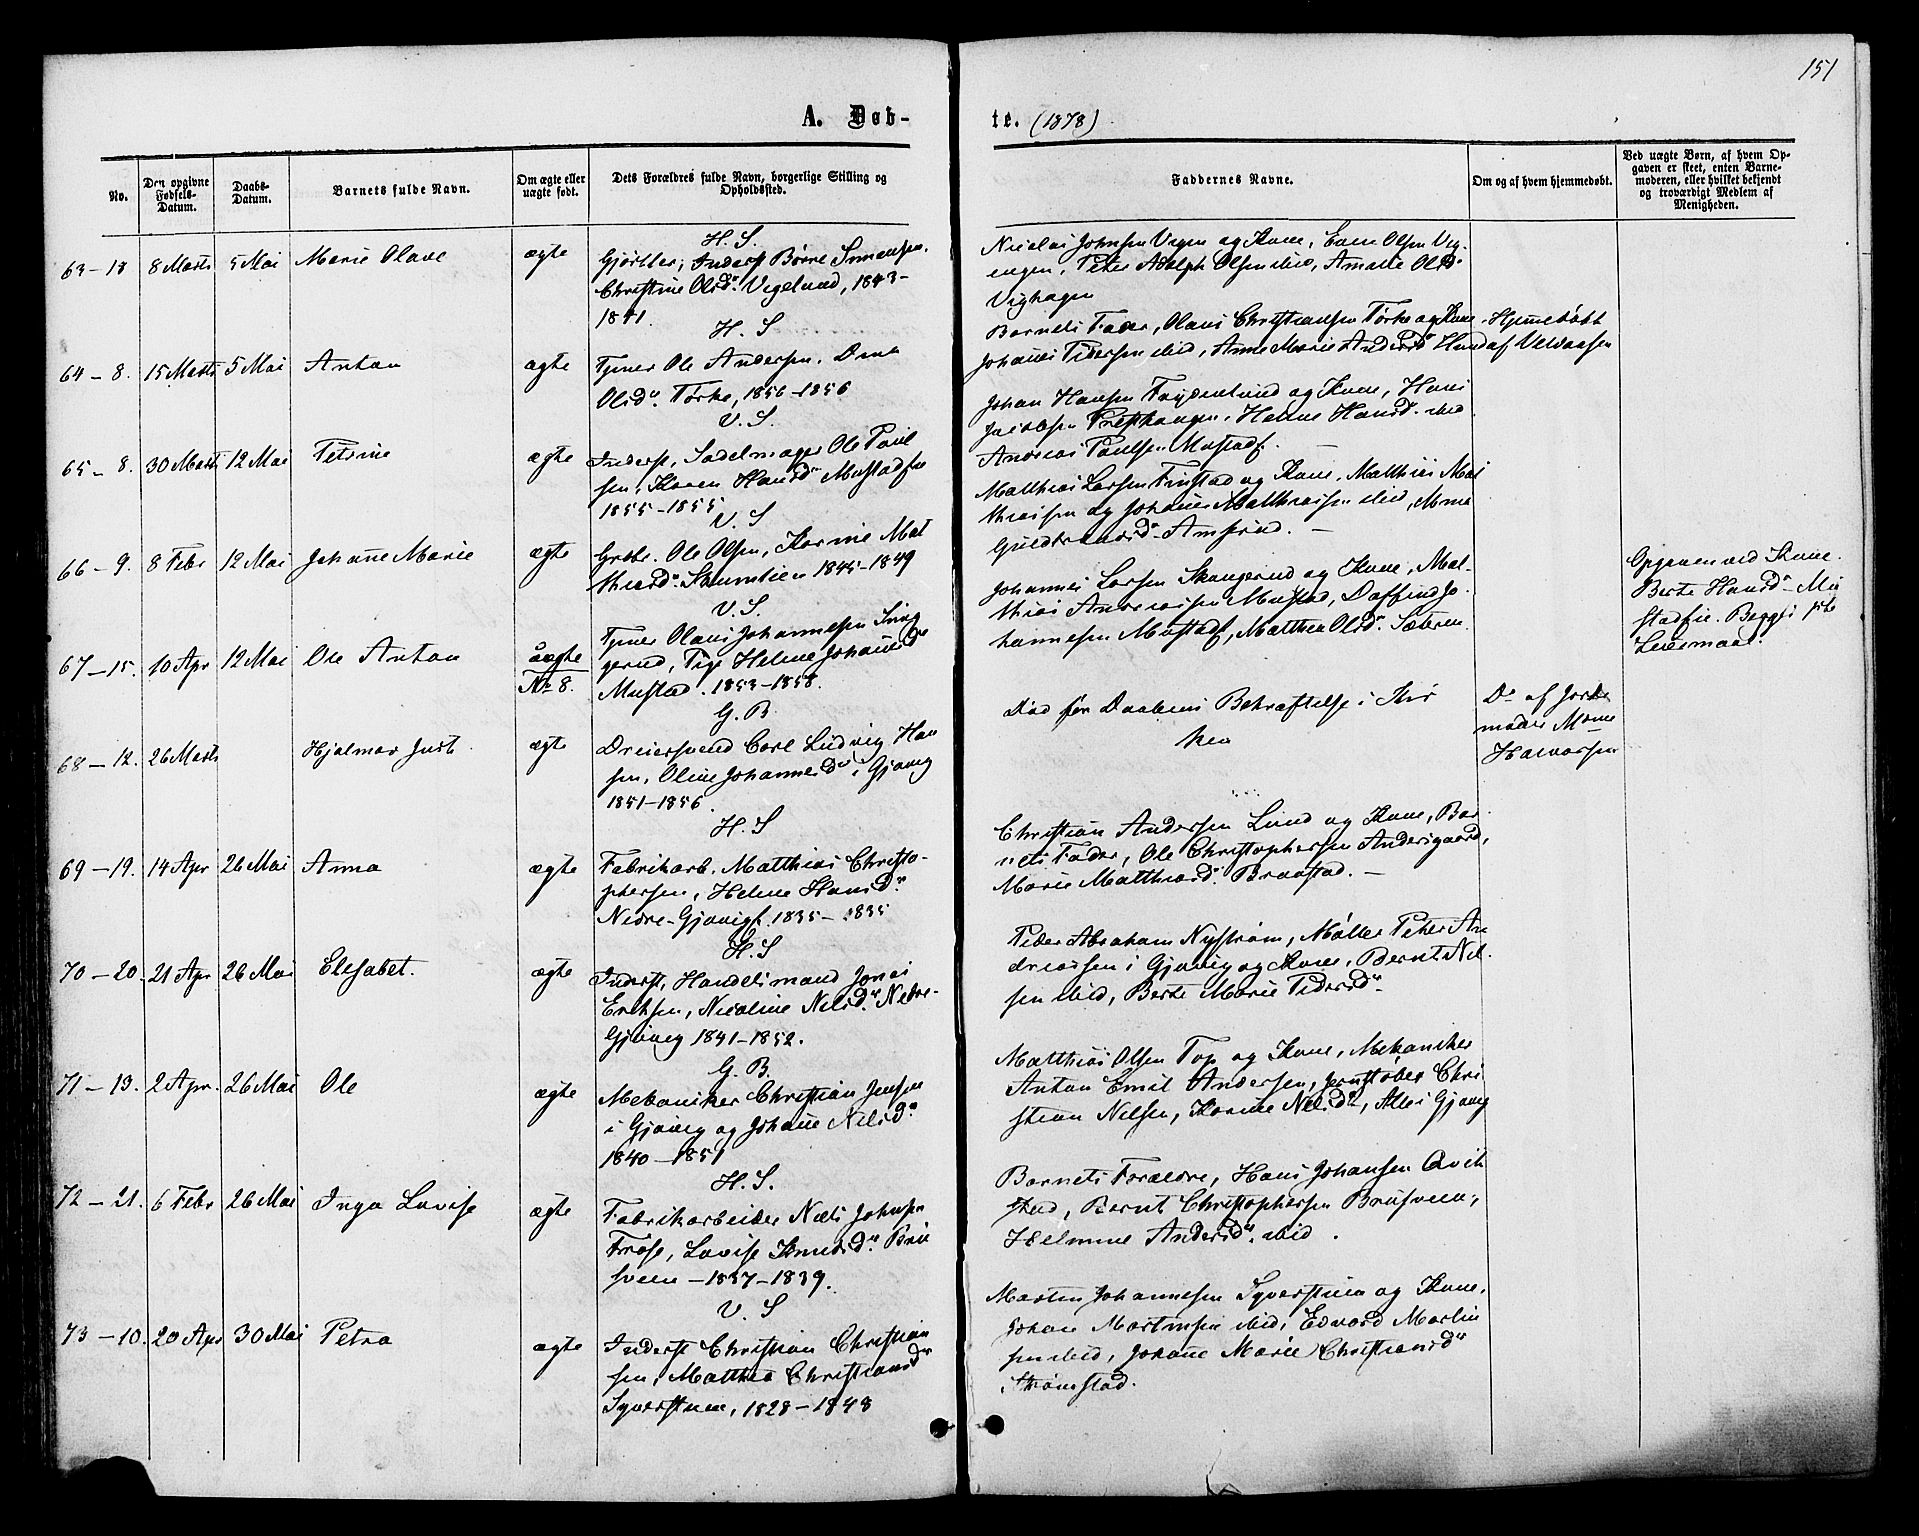 151
A. Døb-
te. (1878)
No.
Den opgivne Fødsels-Datum.
Daabs-Datum.
Barnets fulde Navn.
Om ægte eller uægte født.
Dets Forældres fulde Navn, borgerlige Stilling og Opholdssted.
Faddernes Navne.
Om og af hvem hjemmedøbt.
Ved uægte Børn, af hvem Op-
gaven er skeet, enten Barne-
moderen, eller hvilket bekjendt
og troværdigt Medlem af
Menigheden.
H. S.
63-18 8 Marts 5 Mai Marie Olave ægte
Gjørtler, Inderst Børre Simensen.
Christine Olsdr. Vegelund, 1843-
1841.
Nicolai Johnsen Vegen og Kone, Even Olsen Vig-
engen, Peter Adolph Olsen ibid, Amalie Olsdr
Vighagen
H. S
64-8. 15 Marts 5 Mai Anton ægte
Tjener Ole Andersen. Dina
Olsdr. Tørke, 1856-1856
Barnets Fader, Olaus Christiansen Tørke og Kone.
Johannes Pedersen ibid, Anne Marie Andersdr
Hjemmedøbt
af
V. S.
65-8. 30 Marts 12 Mai Petrine ægte
Inderst, Sadelmager Ole Paul
sen, Karen Hansdr Mustadf
1855-1855
Johan Hansen Frydenlund og Kone, Hans
Jacobsen Præsthaugen. Helene Hansdr. ibid
Andreas Paulsen Mustadf.
V. S
66-9. 8 Febr 12 Mai Johanne Marie ægte
Grdbr. Ole Olsen, Karine Mat
thiasdr. 1845-1849
Matthias Larsen Finstad og Kone, Matthias Mat
thiassen og Johannes Matthiassen ibid,
Guldbrandsdr
V. S.
67-15. 10 Apr 12 Mai Ole Anton uægte
No 8.
Tjener Olaus Johannesen
gerud, Pige Helene Johannesdr
Mustad. 1853-1858.
Johannes Larsen Skangerud og Kone, Mat-
thias Andreassen Mustad, Daffind Jo-
hannesen Mustadf, Matthea Olsdr. Sæteren.
Opgaven ved Kone.
Berte Hansdr. Mu
stadfie. Begges 1ste
Leiermaal.
G. B.
68-12. 26 Marts Hjalmar Just. ægte
Dreiersvend Carl Ludvig Han
sen, Oline Johannesdr i Gjøvig
1851-1856.
Død før Daabens Bekræftelse i Kir
ken
Do af Jorde
moder
Halvorsen
H. S
69-19. 14 Apr 26 Mai Anna ægte
Fabrikarb. Matthias Christo-
phersen, Helene Hansdr.
Nedre-Gjøvigf. 1835-1835
Christian Andersen Lund og Kone, Bar
nets Fader, Ole Christophersen Andersgaard,
Marie Matthiasdr. Braastad.
H. S
70-20. 21 Apr 26 Mai Elisabet. ægte
Inderst, Handelsmand Jonas
Eriksen, Nicoline Nilsdr. Nedre-
Gjøvig 1841-1852.
Peder Abraham Nystrøm, Møller Peter An
dreassen i Gjøvig og Kone, Bernt Nil
sen ibid, Berte Marie Pedersdr.
G. B.
71-13. 2 Apr. 26 Mai Ole ægte
Mekaniker Christian Jensen
i Gjøvig og Johanne Nilsdr.
1840-1851
Matthias Olsen Top og Kone, Mekaniker
Anton Emil Andersen, Jernstøber Chri
stian Nilsen, Karine Nilsdr, Alle i Gjøvig
H. S.
72-21. 6 Febr 26 Mai Inga Lovise ægte
Fabrikarbeider Niels Johnsen
Frøse, Lovise Knudsdr. Bru
sveen - 1837-1839.
Barnets Forældre, Hans Johansen Qvik
stad, Bernt Christophersen Brusveen,
Helmine Andersdr. ibid.
V. S
73-10. 20 Apr 30 Mai Petra ægte
Inderst Christian Christian
sen, Matthea Christiansdr
Syverstuen, 1828-1848
Martin Johannesen Syverstuen og Kone.
Johan Martinsen ibid, Edvard Martin
sen ibid, Johanne Marie Christiansdr
Strømstad.